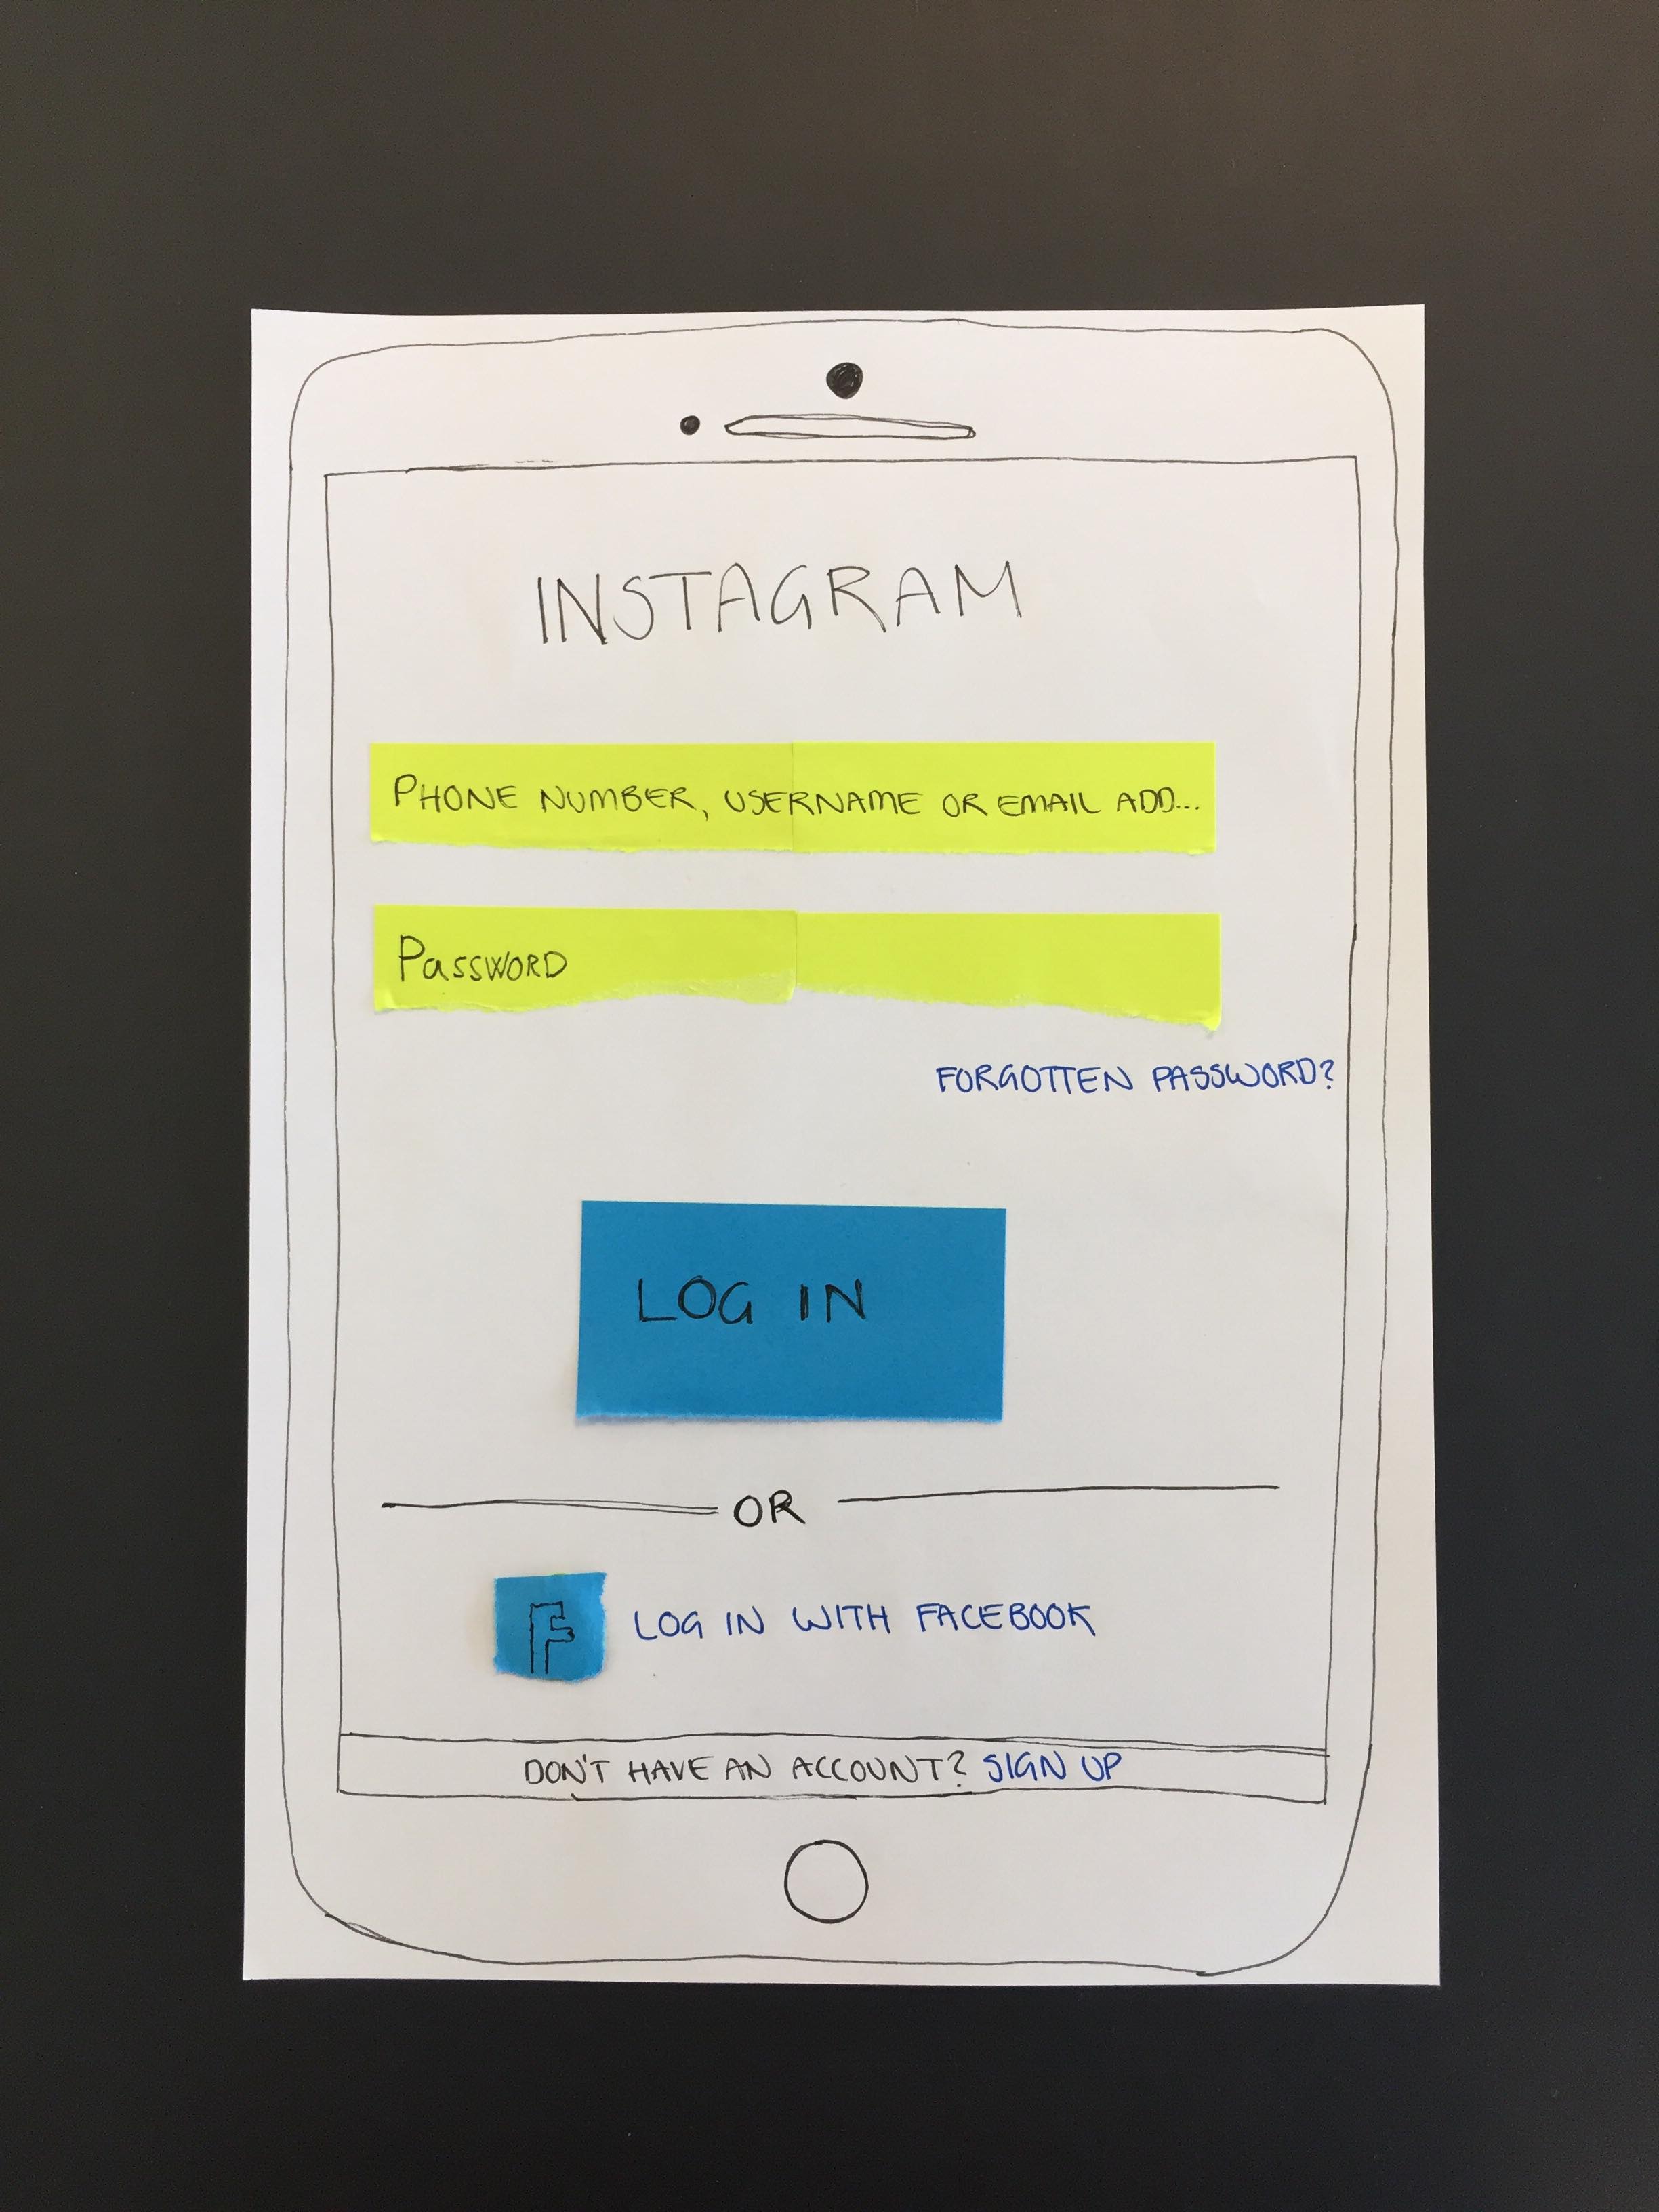 INSTAGRAM
PHONE NUMBER, USERNAME OR EMAIL ADD...
PASSWORD
FORGOTTEN PASSWORD?
LOG IN
OR
F LOG IN WITH FACEBOOK
DON'T HAVE AN ACCOUNT? SIGN UP